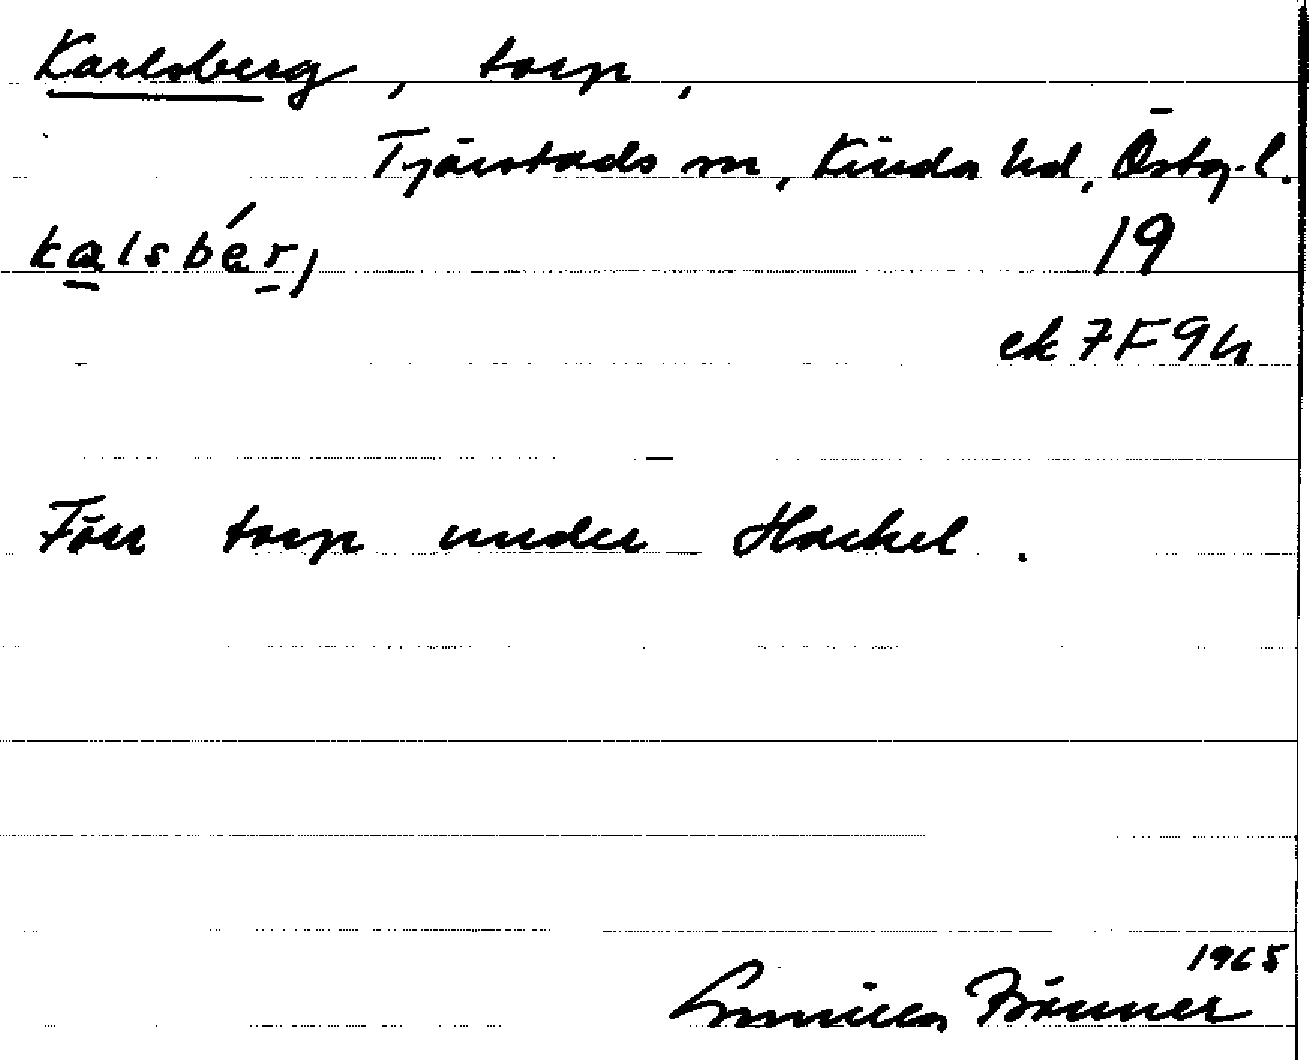 Karlsberg, torp,
Tjärstads sn, Kinda hd, Östg. l.
kalsbér,
19
ek 7F9h
Förr torp under Hackel.
1965
Gunilla